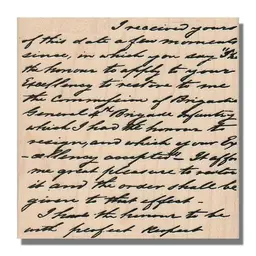 I received yours
of this date a few moments
since, in which you say "I do
the honour to apply to your
Excellency to restore to me
the Commission of Brigade
General 1st Brigade Infantry
which I had the honour to
resign, and which your Ex-
cellency accepted". It affords
me great pleasure to restore
it and the order shall be
given to that effect -
I have the honour to be
with perfect respect